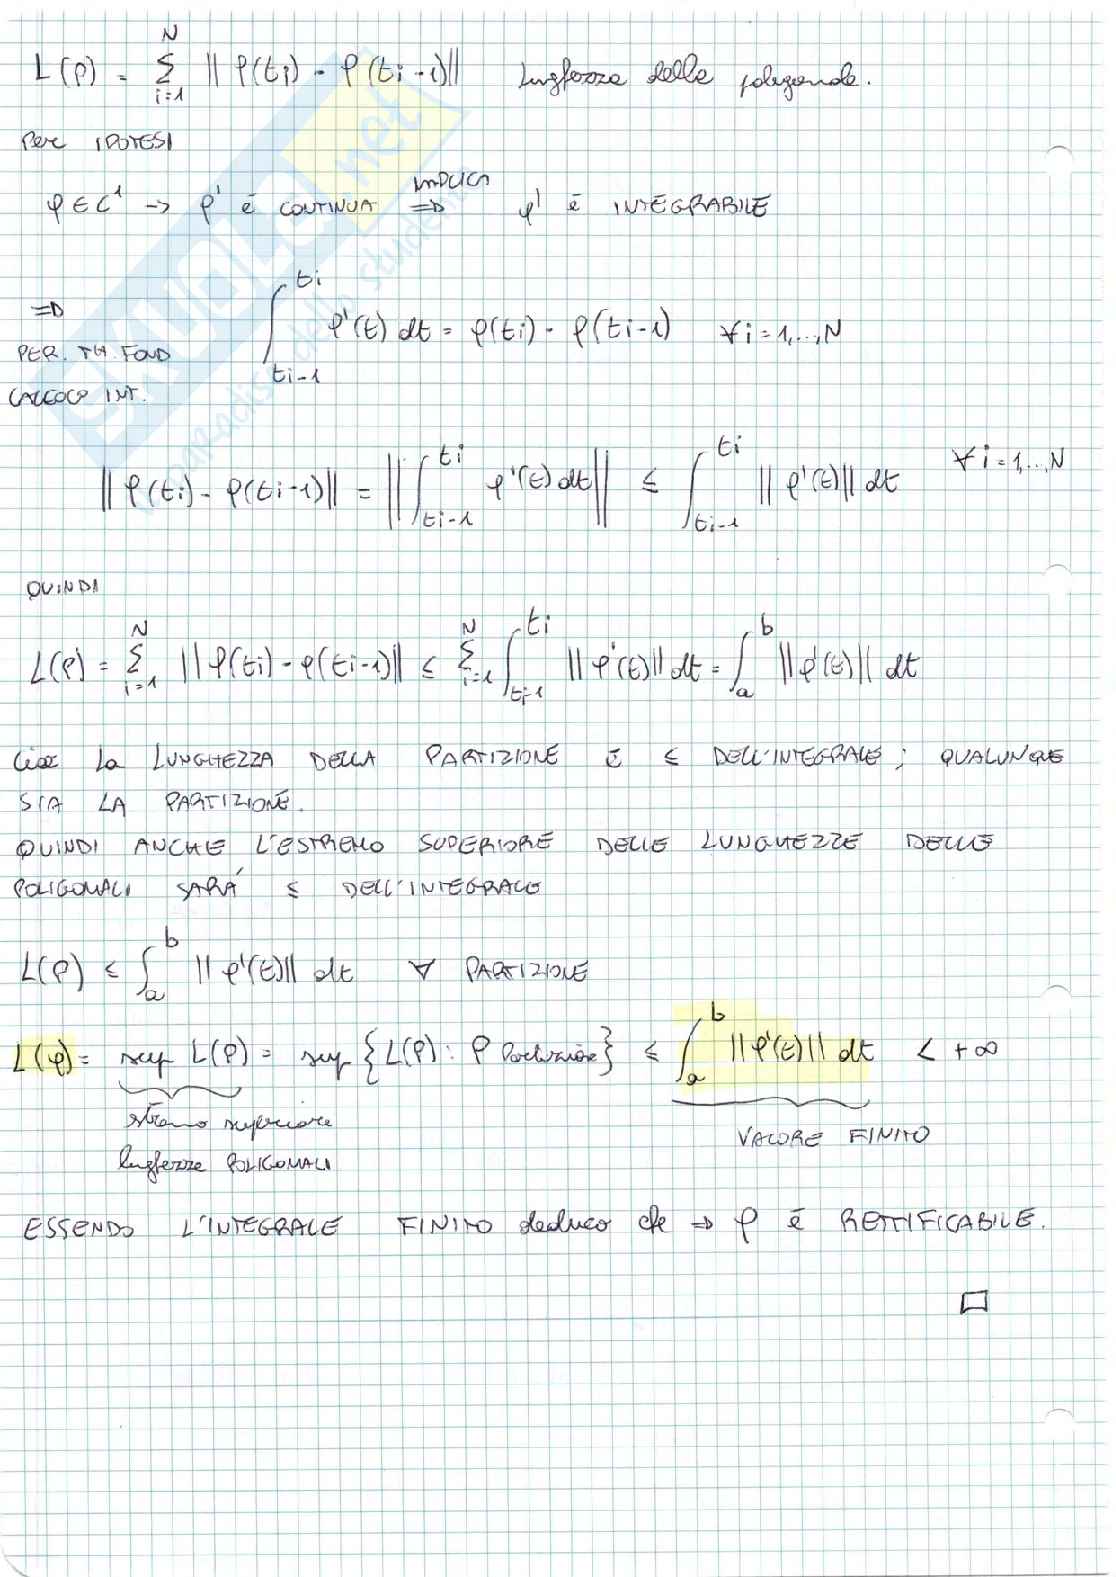 L(P) = N Σ i=1 || φ(ti) - φ(ti-1) || lunghezza della poligonale.
Per IPOTESI
φ ∈ C¹ → φ' è CONTINUA IMPLICA ⇒ φ' è INTEGRABILE
⇒ ∫ ti ti-1 φ'(t) dt = φ(ti) - φ(ti-1) ∀ i = 1,..,N
PER. TH. FOND
CALCOLO INT.
|| φ(ti) - φ(ti-1) || = || ∫ ti ti-1 φ'(t) dt || ≤ ∫ ti ti-1 || φ'(t) || dt ∀ i = 1,..,N
QUINDI
L(P) = N Σ i=1 || φ(ti) - φ(ti-1) || ≤ N Σ i=1 ∫ ti ti-1 || φ'(t) || dt = ∫ b a || φ'(t) || dt
Cioè La LUNGHEZZA DELLA PARTIZIONE È ≤ DELL'INTEGRALE; QUALUNQUE
SIA LA PARTIZIONE.
QUINDI ANCHE L'ESTREMO SUPERIORE DELLE LUNGHEZZE DELLE
POLIGONALI SARÁ ≤ DELL'INTEGRALE
L(P) ≤ ∫ b a || φ'(t) || dt ∀ PARTIZIONE
L(φ) = sup L(P) = sup { L(P) : P Partizione } ≤ ∫ b a || φ'(t) || dt < +∞
estremo superiore
lunghezze POLIGONALI
VALORE FINITO
ESSENDO L'INTEGRALE FINITO deduco che ⇒ φ è RETTIFICABILE.
SKUOLA.net
il paradiso dello studente